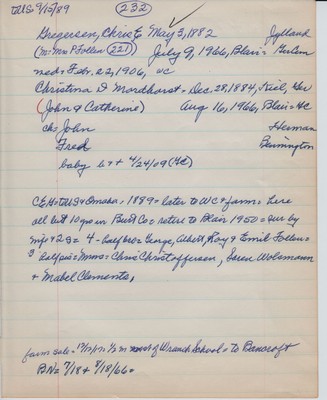 TWS 9/15/89 (232)
Gregersen, Chris E May 3, 1882 Jylland
(m: Mrs P Follen (221)) July 9, 1966, Blair =
med = Feb. 22, 1906, WC
Christina D Mordhorst = Dec. 28, 1884, Kiel, Ger
(John & Catherine) Aug 16, 1966, Blair = WC
ch: John Herman
Fred Bennington
baby b + + 4/24/09 (WC)
CEG = to US & Omaha, 1889 = later to WC & farm = here
all but 10 yrs in Burt Co = retire to Blair 1950 = sur by
wife & 2 s = 4 - half bros = George, Albert, Roy & Emil Follen =
3 half sis = Mmes = Chris Christoffersen, Soren Wolsmann
& Mabel Clements,
farm sale = of Wranch School = to Bancroft
BN = 7/18 & 8/18/66 =